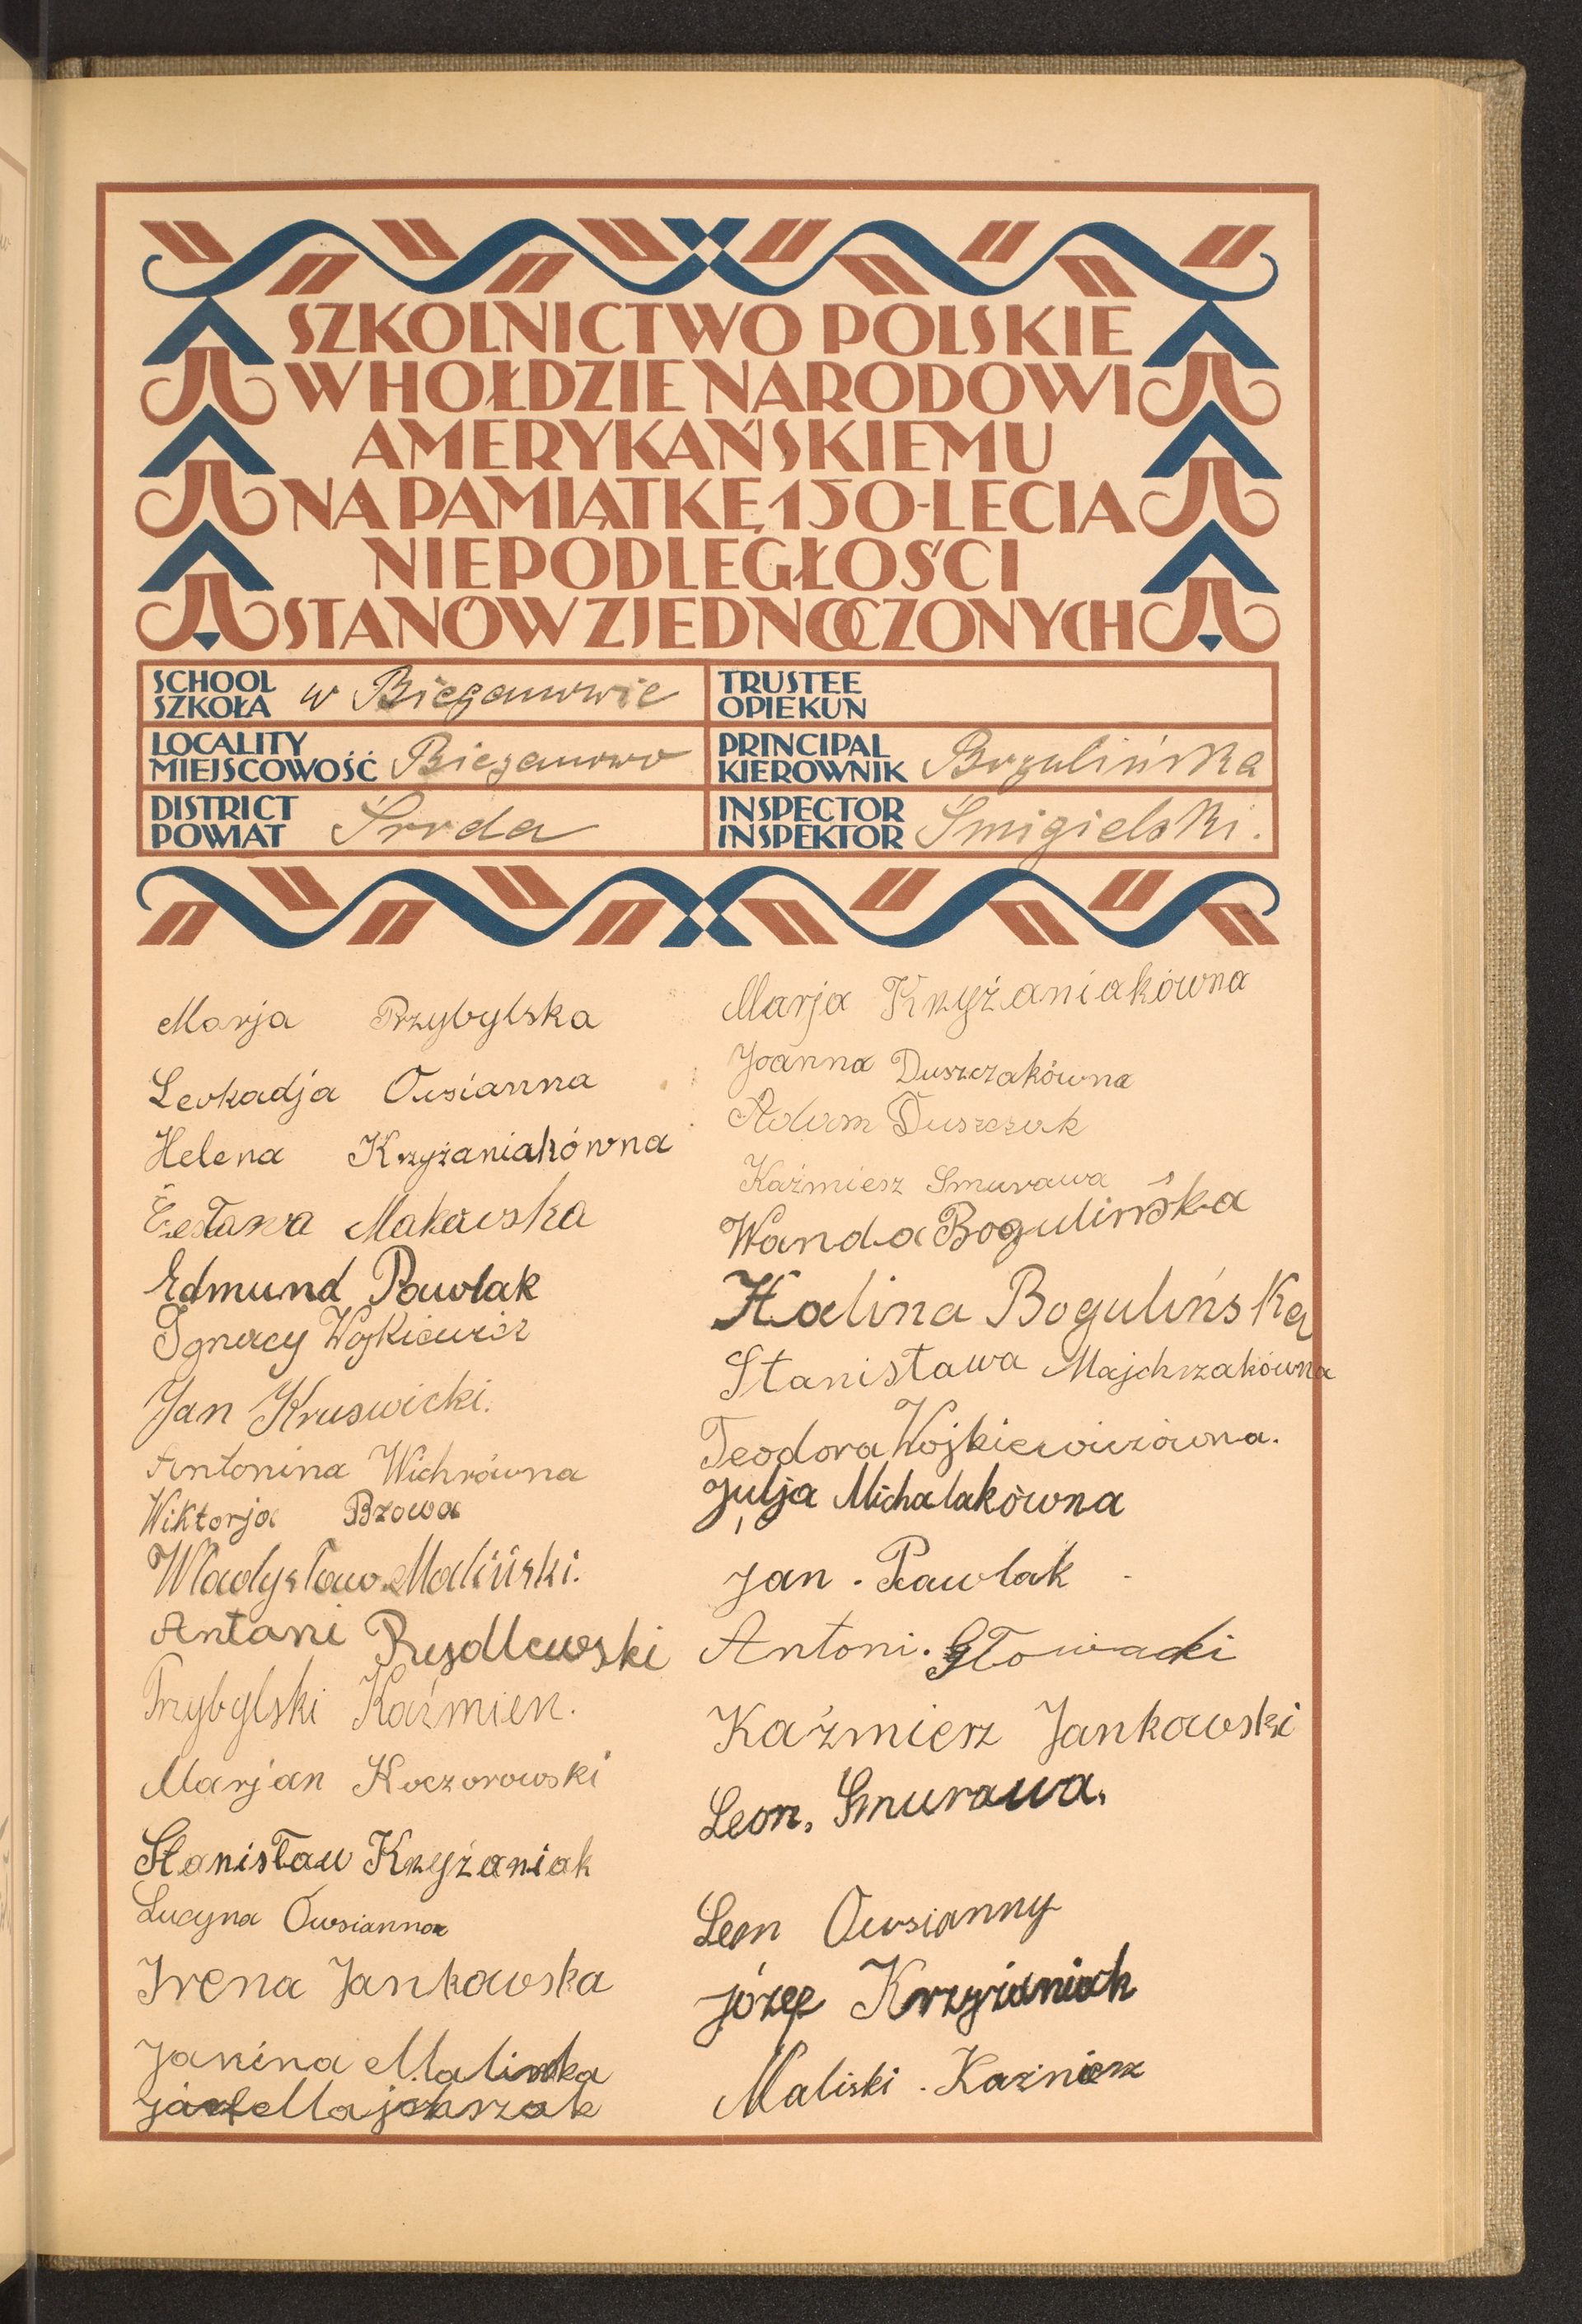 SZKOLNICTWO POLSKIE
W HOŁDZIE NARODOWI
AMERYKAŃSKIEMU
NA PAMIĄTKĘ 150-LECIA
NIEPODLEGŁOŚCI
STANÓW ZJEDNOCZONYCH
SCHOOL
SZKOŁA w Bieganowie
TRUSTEE
OPIEKUN
LOCALITY
MIEJSCOWOŚĆ Bieganowo
PRINCIPAL
KIEROWNIK Bogulińska
DISTRICT
POWIAT Środa
INSPECTOR
INSPEKTOR Śmigielski.
Marja Przybylska
Leokadja Owsianna
Helena Krzyżaniakówna
Makowska
Edmund Pawlak
Ignacy Wojkiewicz
Jan Kruswicki.
Antonina Wichrówna
Wiktorja Bzowa
Władysław Maliński.
Antoni Rydlewski
Przybylski Kaźmierz.
Marjan Koczorowski
Stanisław Krzyżaniak
Lucyna Owsianna
Irena Jankowska
Janina Malinska
Józef Majchrzak
Marja Krzyżaniakówna
Joanna Duszczakówna
Adam Duszczak
Kaźmiesz Smurawa
Wanda Bogulińska
Halina Bogulińska
Stanisława Majchrzakówna
Teodora Wojkiewiczówna.
Julja Michalakówna
Jan. Pawlak
Antoni. Głowacki
Kaźmierz Jankowski
Leon. Smurawa.
Leon Owsianny
Józef Krzyżaniak
Maliski. Kaźmierz